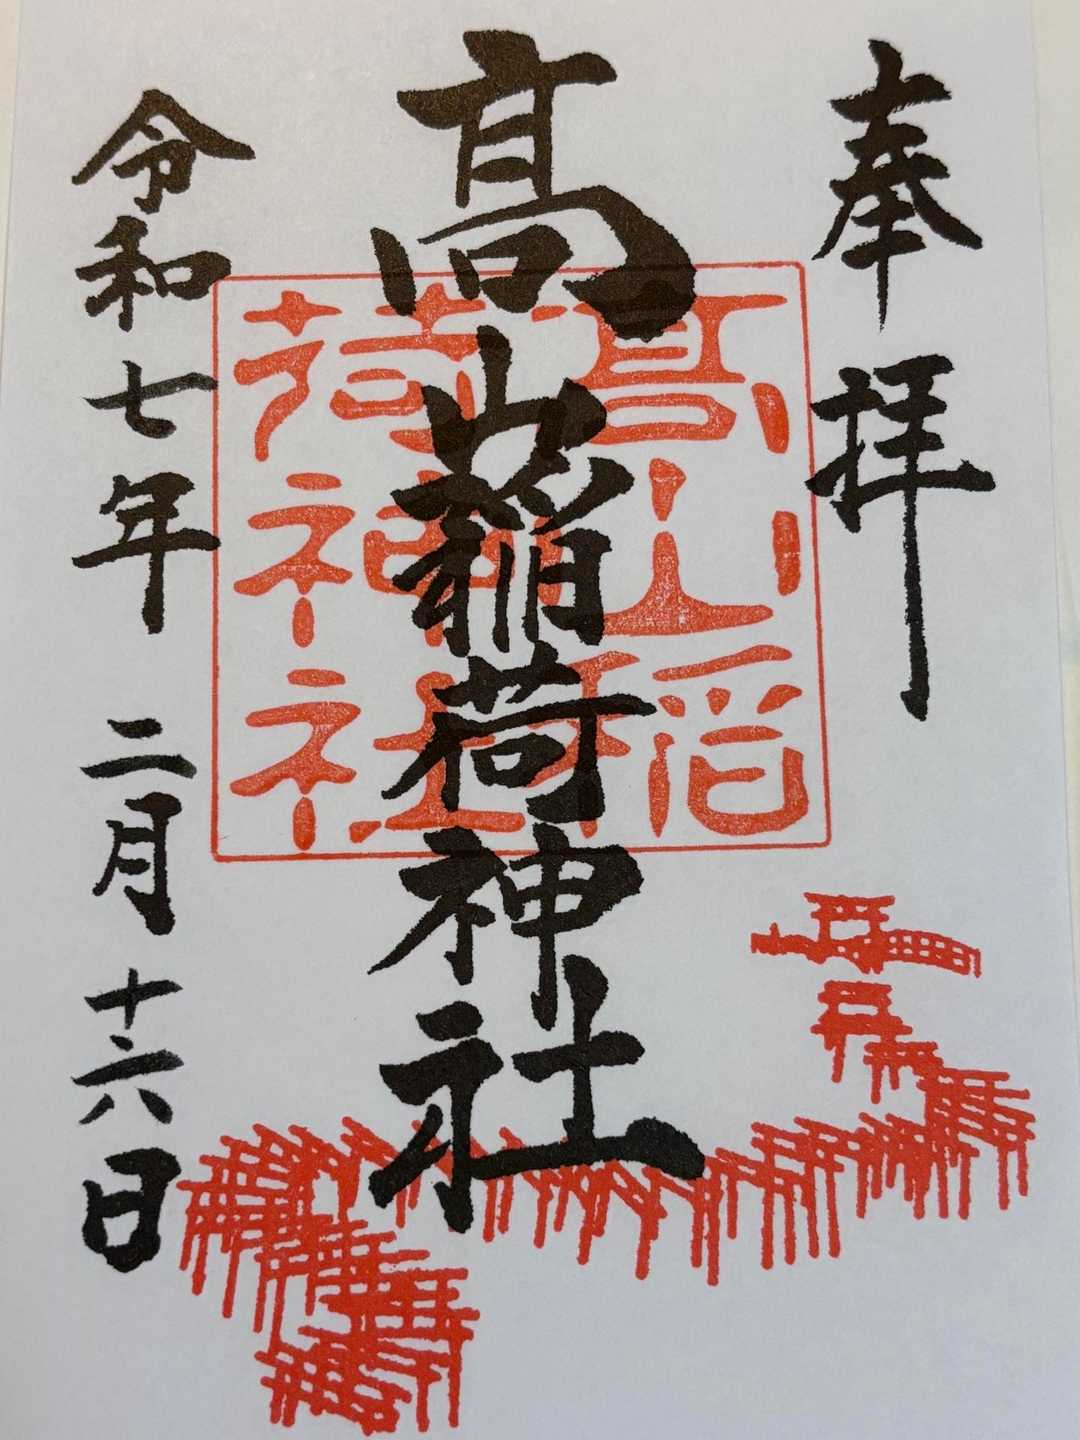 奉拝
高山稲荷神社
高山稲
荷神社
令和七年二月十六日